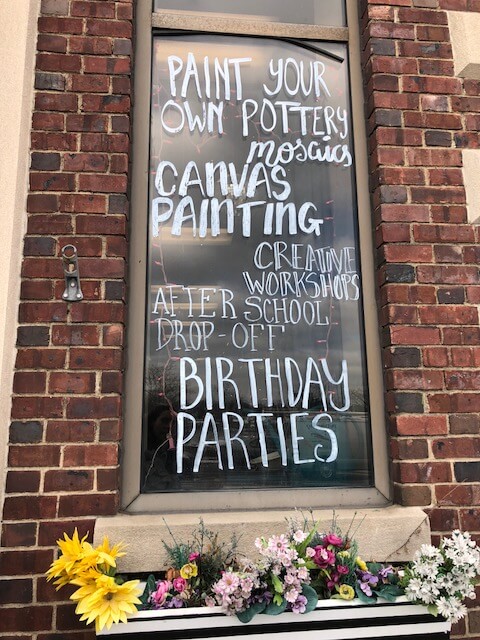 PAINT YOUR
OWN POTTERY
mosaics
CANVAS
PAINTING
CREATIVE
WORKSHOPS
AFTER SCHOOL
DROP-OFF
BIRTHDAY
PARTIES